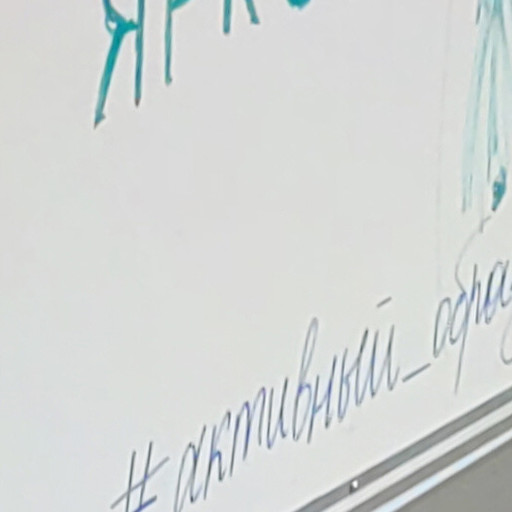 ЯРКО
#активный_обра